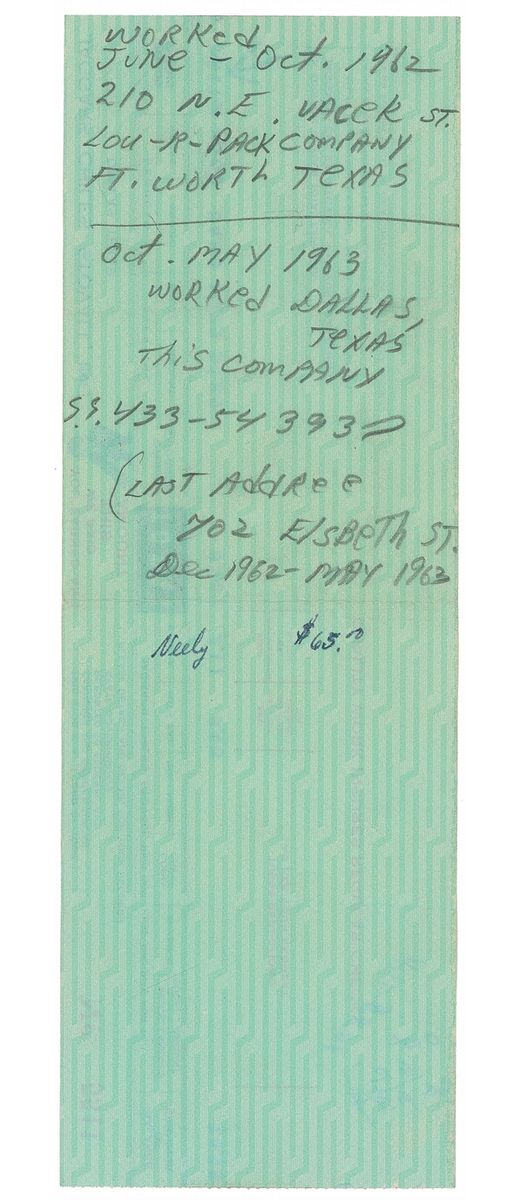 WORKed
JUNe - Oct. 1962
210 N.E. VACEK ST.
LOU-R-PACK COMPANY
FT. WORTH TEXAS
Oct. MAY 1963
WORKed DALLAS,
TEXAS
THiS COMPANY
S.S. 433-54 3937
(LAST AddRee
702 ElSBeTh ST.
Dec 1962- MAY 1963
Neely $65.00